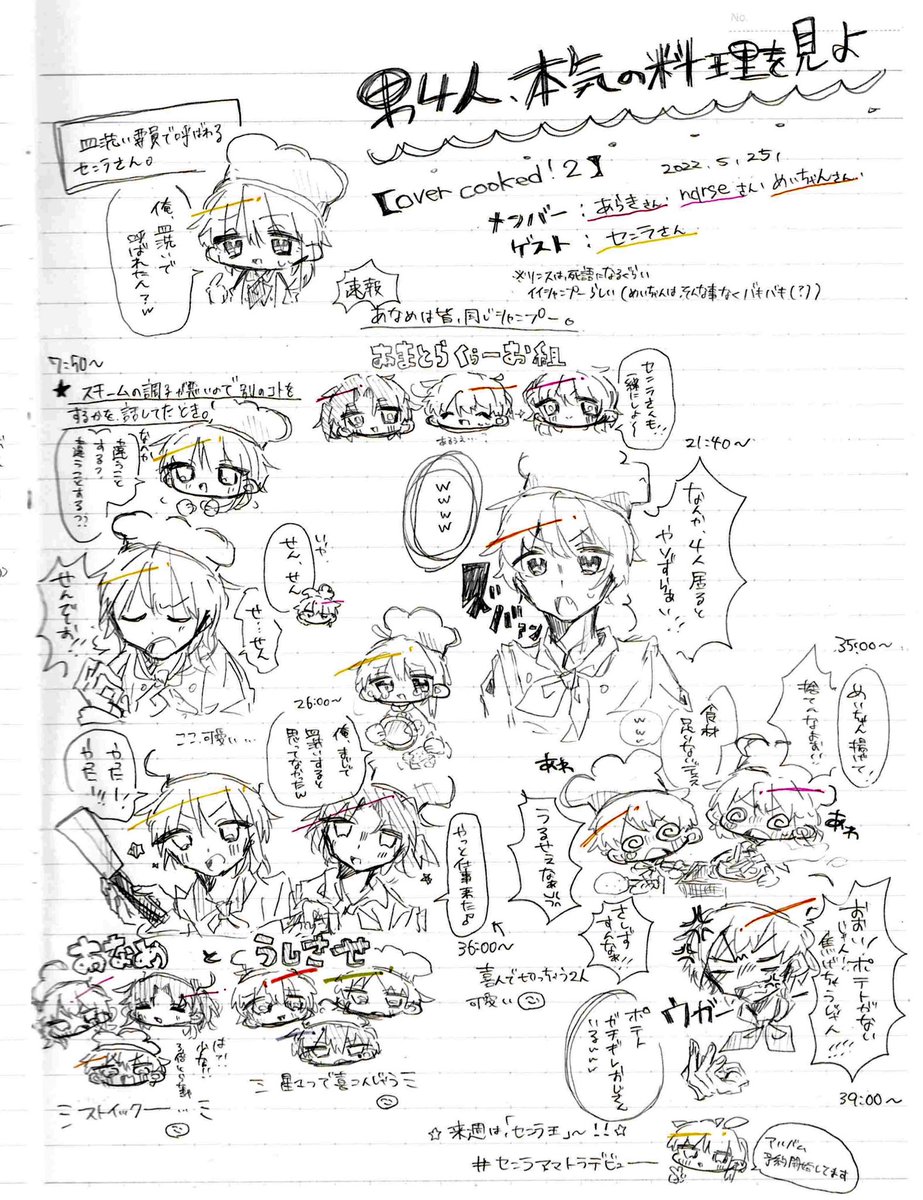 No.
男4人、本気の料理を見よ
皿洗い要員で呼ばれる
セニラさん。
俺、皿洗いで
呼ばれたん？w
【over cooked! 2】
2022.5.25.
メンバー：あらきさん. nqrseさん. めいちゃんさん.
ゲスト：セニラさん
※リンスは、死語になるぐらい
イイシャンプーらしい(めいちゃんはそんな事なくバキバキ(?))
速報
あなめは皆、同じシャンプー。
あまとらくぅーお組
セニラさんも
一緒にしよ〜!!
あろうえ…
7:50〜
★スチームの調子が悪いので別のコトを
するかを、話してたとき。
なんか
違うこと
する?
違うことする??
いや
せん、せん
せ…せん
せんでお!!
ここ、可愛い…
21:40〜
wwww
なんか、4人居ると
やりずらぁい!!
ズバァン
26:00〜
俺、まじで
皿洗いすると
思ってなかったん
35:00〜
めいちゃん揚げて!
捨てんなおお!!
食材
足りないデェス
www
あわ
あわ
うるせえなぁ
さしず
すんなぁ!!
やったー!
やった!
やっと仕事来た♪
36:00〜
喜んで切っちゃう2人
可愛い
おおい!ポテトがない
じゃん!
焦げちゃうじゃん!!!!
ウガー
ポテト
ガチギレおじさん
いるwww
39:00〜
あなめ と うしさせ
はっ!?
少な!!
ストイック──
星1つで喜こんじゃう
☆来週は、「セニラ王」〜!!☆
#セニラアマトラデビュー
アルバム
予約開始してます